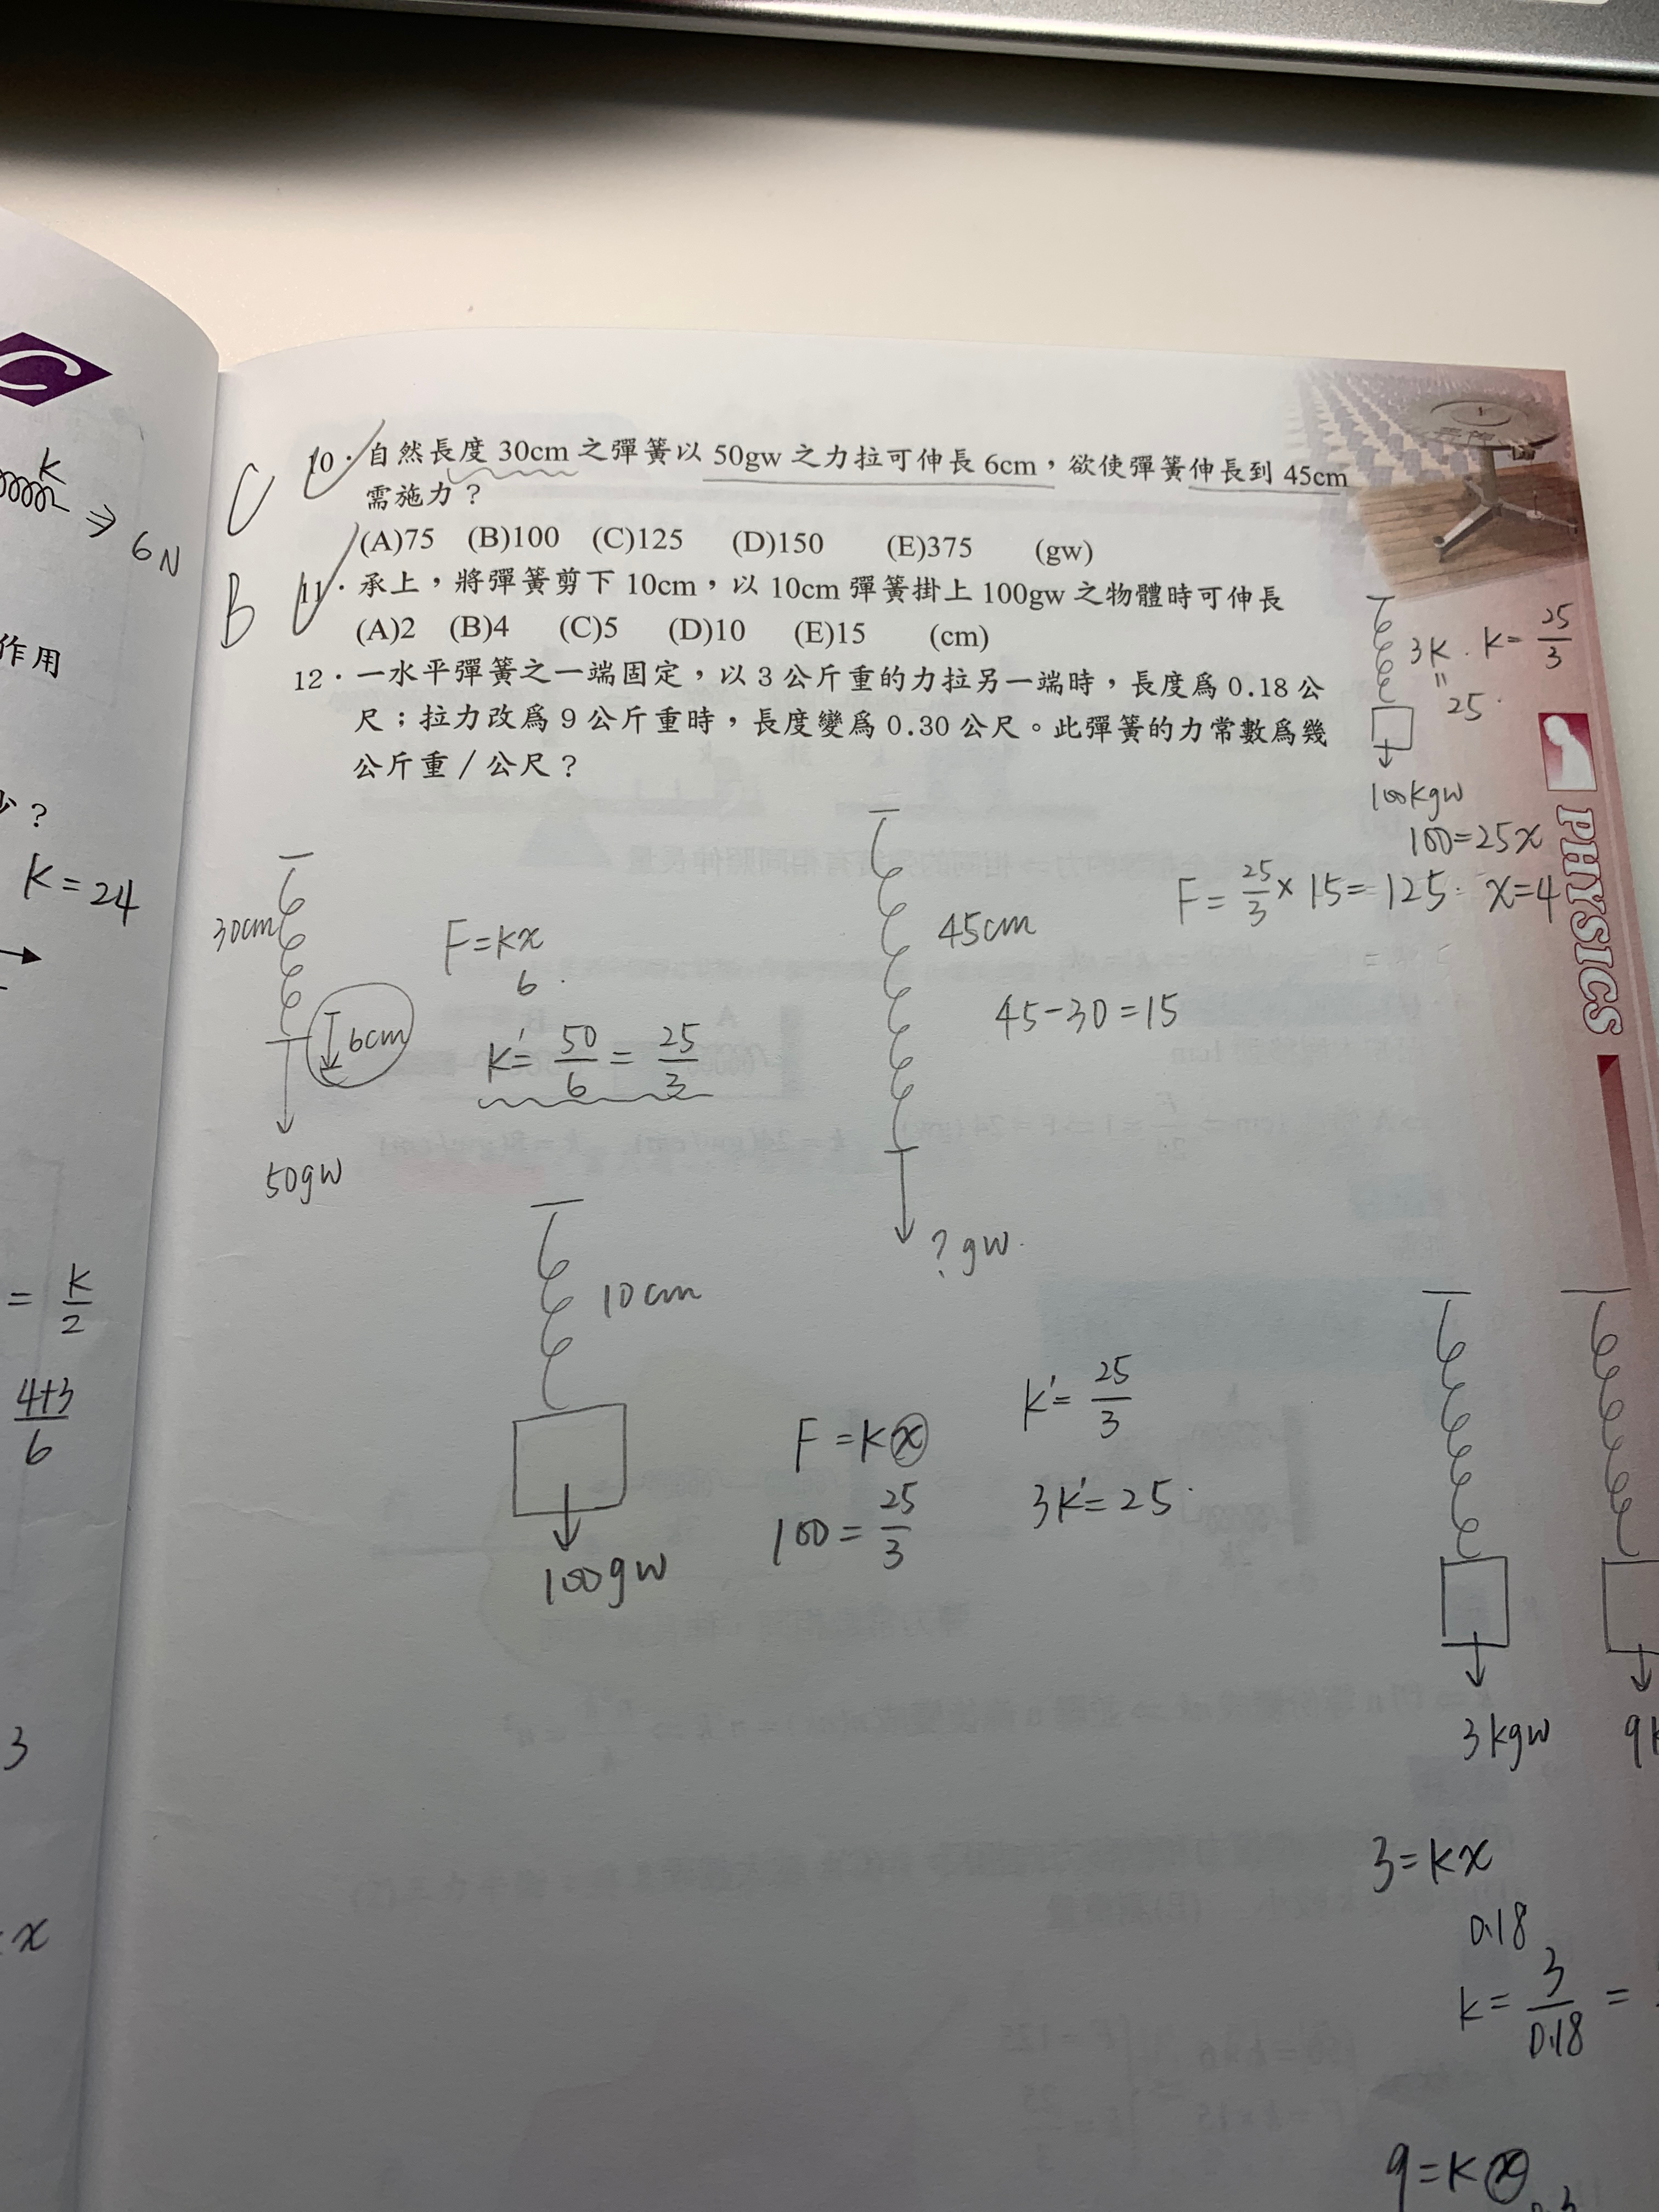 10．自然長度 30cm 之彈簧以 50gw 之力拉可伸長 6cm，欲使彈簧伸長到 45cm
需施力？
(A)75 (B)100 (C)125 (D)150 (E)375 (gw)
11．承上，將彈簧剪下 10cm，以 10cm 彈簧掛上 100gw 之物體時可伸長
(A)2 (B)4 (C)5 (D)10 (E)15 (cm)
12．一水平彈簧之一端固定，以 3 公斤重的力拉另一端時，長度為 0.18 公
尺；拉力改為 9 公斤重時，長度變為 0.30 公尺。此彈簧的力常數為幾
公斤重／公尺？
C
B
PHYSICS
K
6N
作用
？
K=24
= K/2
4+3/6
3
x
3K . K= 25/3
"
25.
100Kgw
100=25x
F= 25/3 × 15=125. x=4
30cm
6cm
50gw
F=Kx
6.
K'= 50/6 = 25/3
45cm
45-30=15
? gw.
10cm
100gw
F=Kx
100= 25/3
K'= 25/3
3K'=25.
3kgw
9k
3=Kx
0.18
K= 3/0.18 =
9=Kx